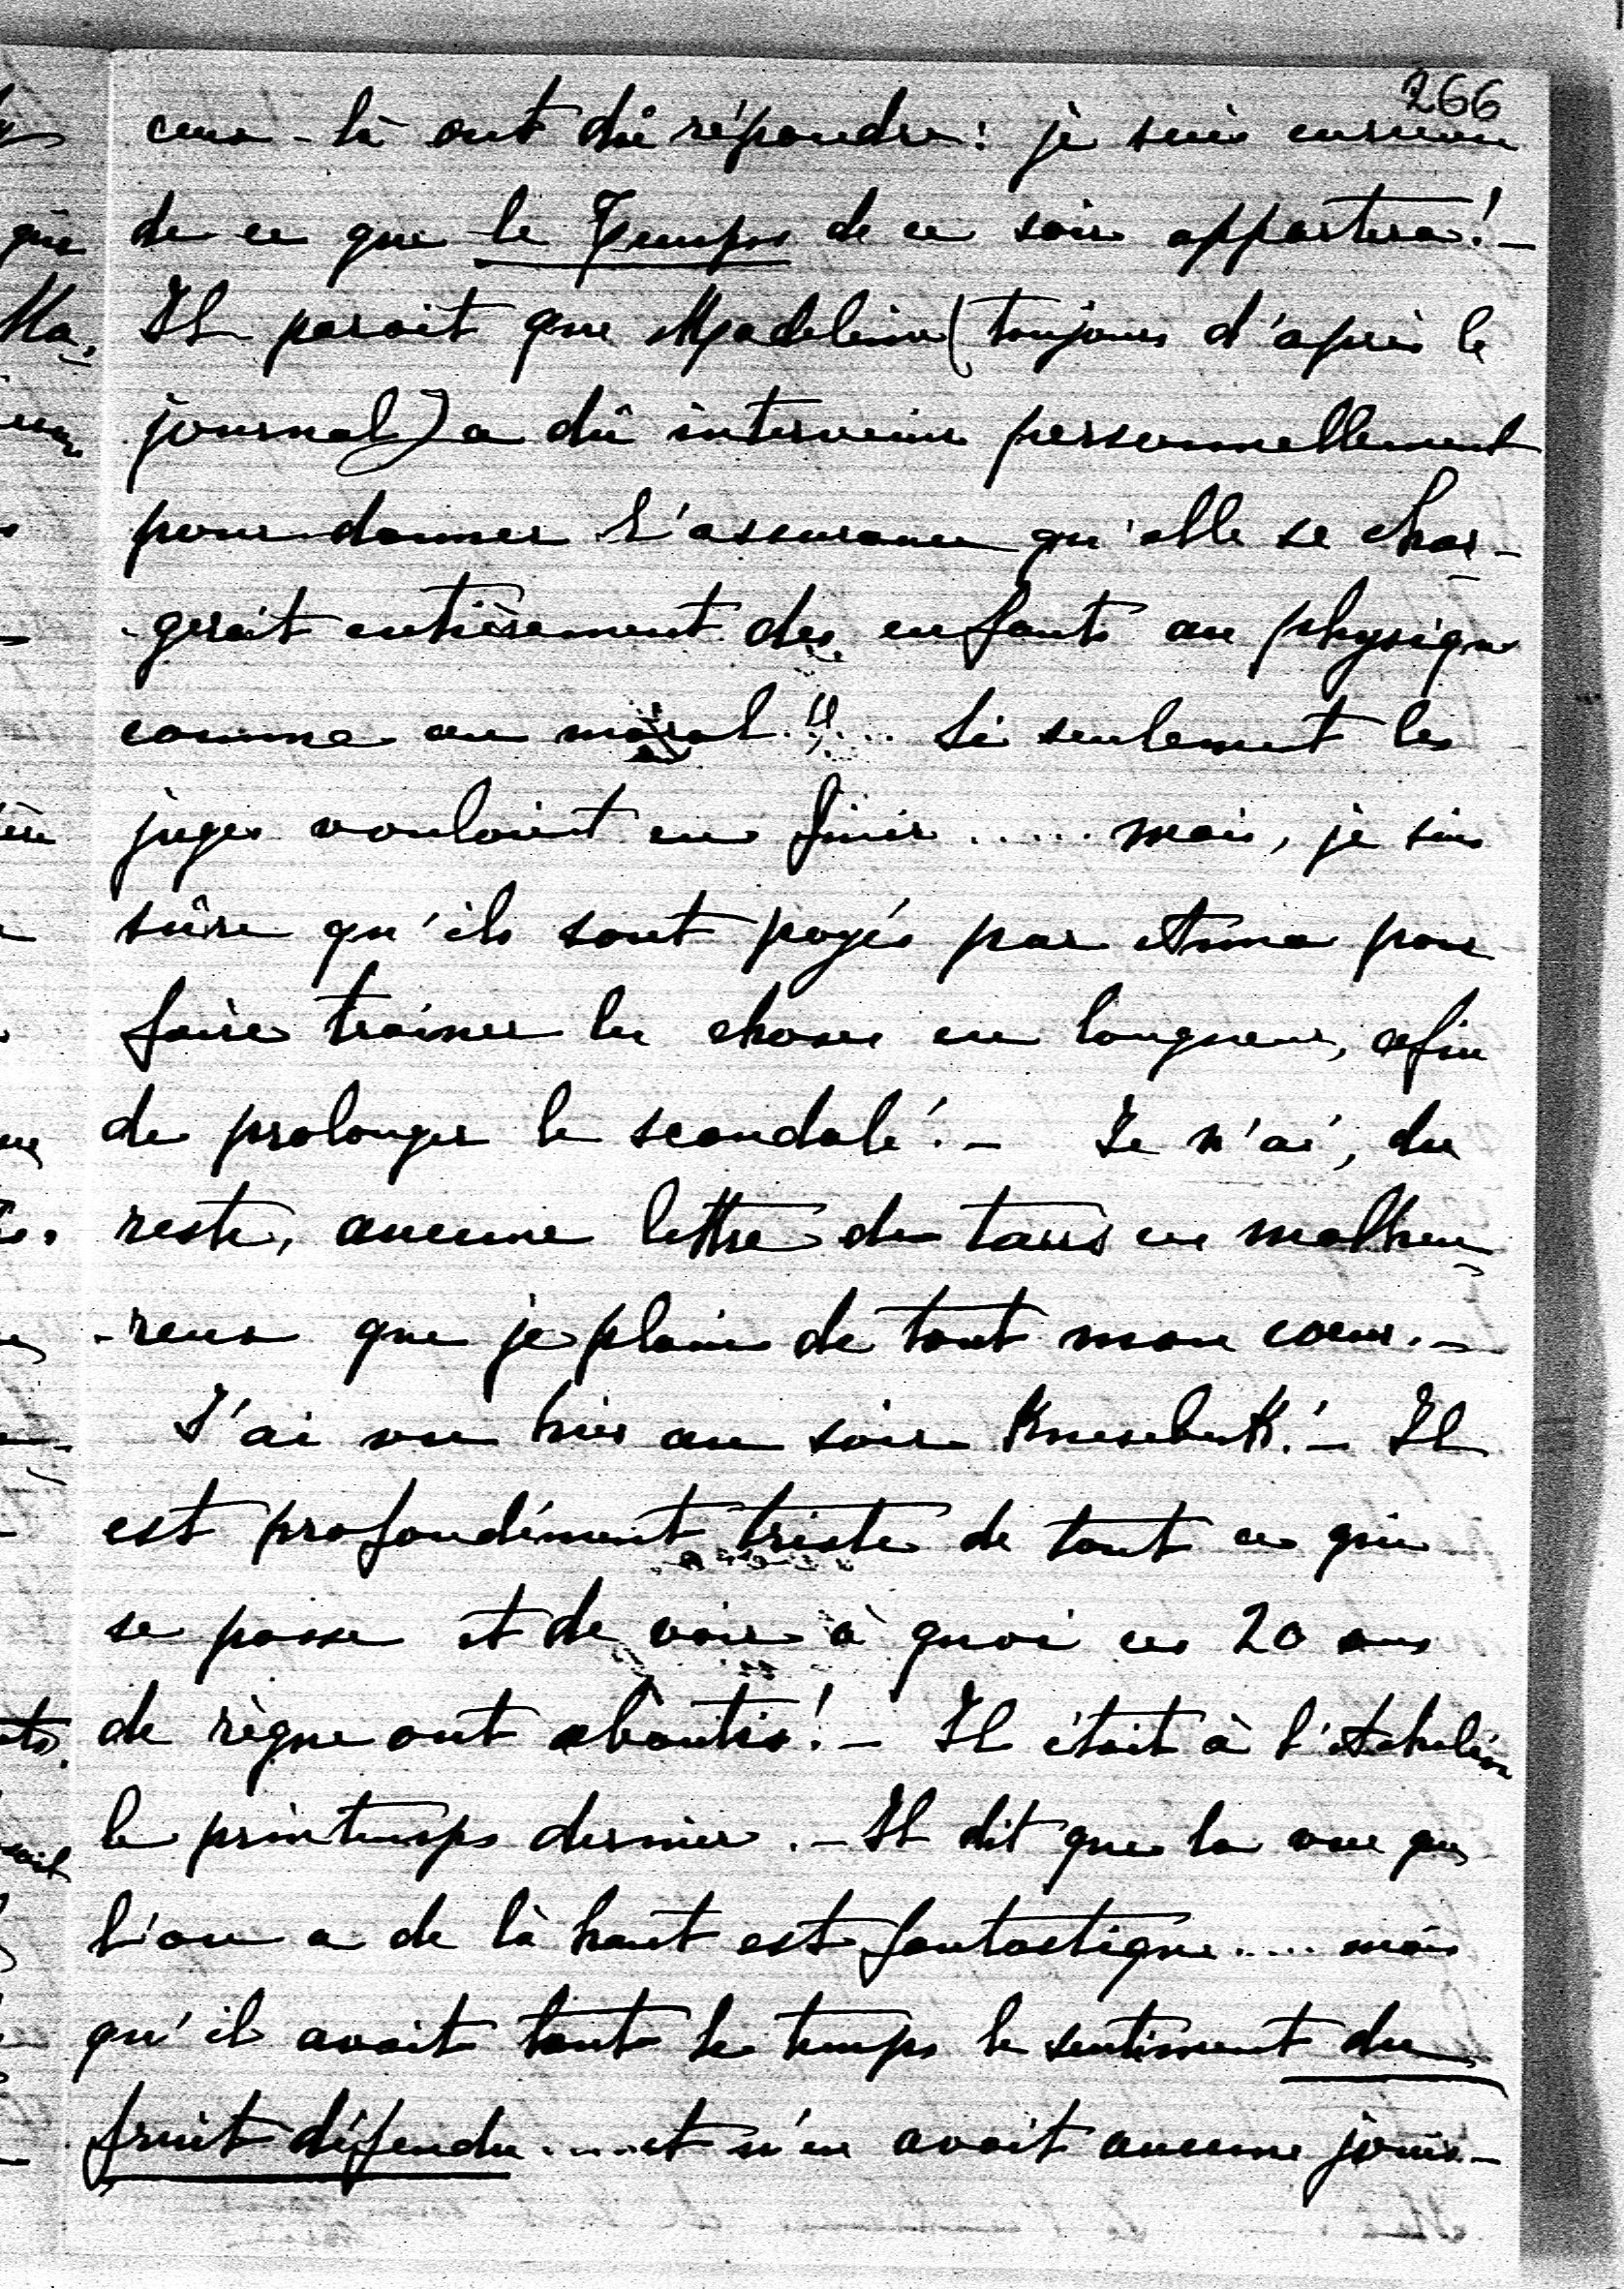 266
ceux-là ont dû répondre: je suis curieuse
de ce que le Temps de ce soir apportera! -
Il parait que Madeleine (toujours d'après le
journal) a dû intervenir personnellement
pour donner l'assurance qu'elle se char-
-gerait entièrement des enfants au physique
comme au moral!!.... Si seulement les
juges voulaient en finir ..... mais, je suis
sûre qu'ils sont payés par Anna pour
faire trainer les choses en longueur, afin
de prolonger le scandale! - Je n'ai, du
reste, aucune lettre de tous ces malheu-
-reux que je plains de tout mon coeur. -
J'ai vu hier au soir Knesebeck! - Il
est profondément triste de tout ce qui
se passe et de voir à quoi ces 20 ans
de règne ont aboutis! - Il était à l'Achileon
le printemps dernier. - Il dit que la vue que
l'on a de là haut est fantastique .... mais
qu'il avait tout le temps le sentiment du
fruit défendu .... et n'en avait aucune jouis-